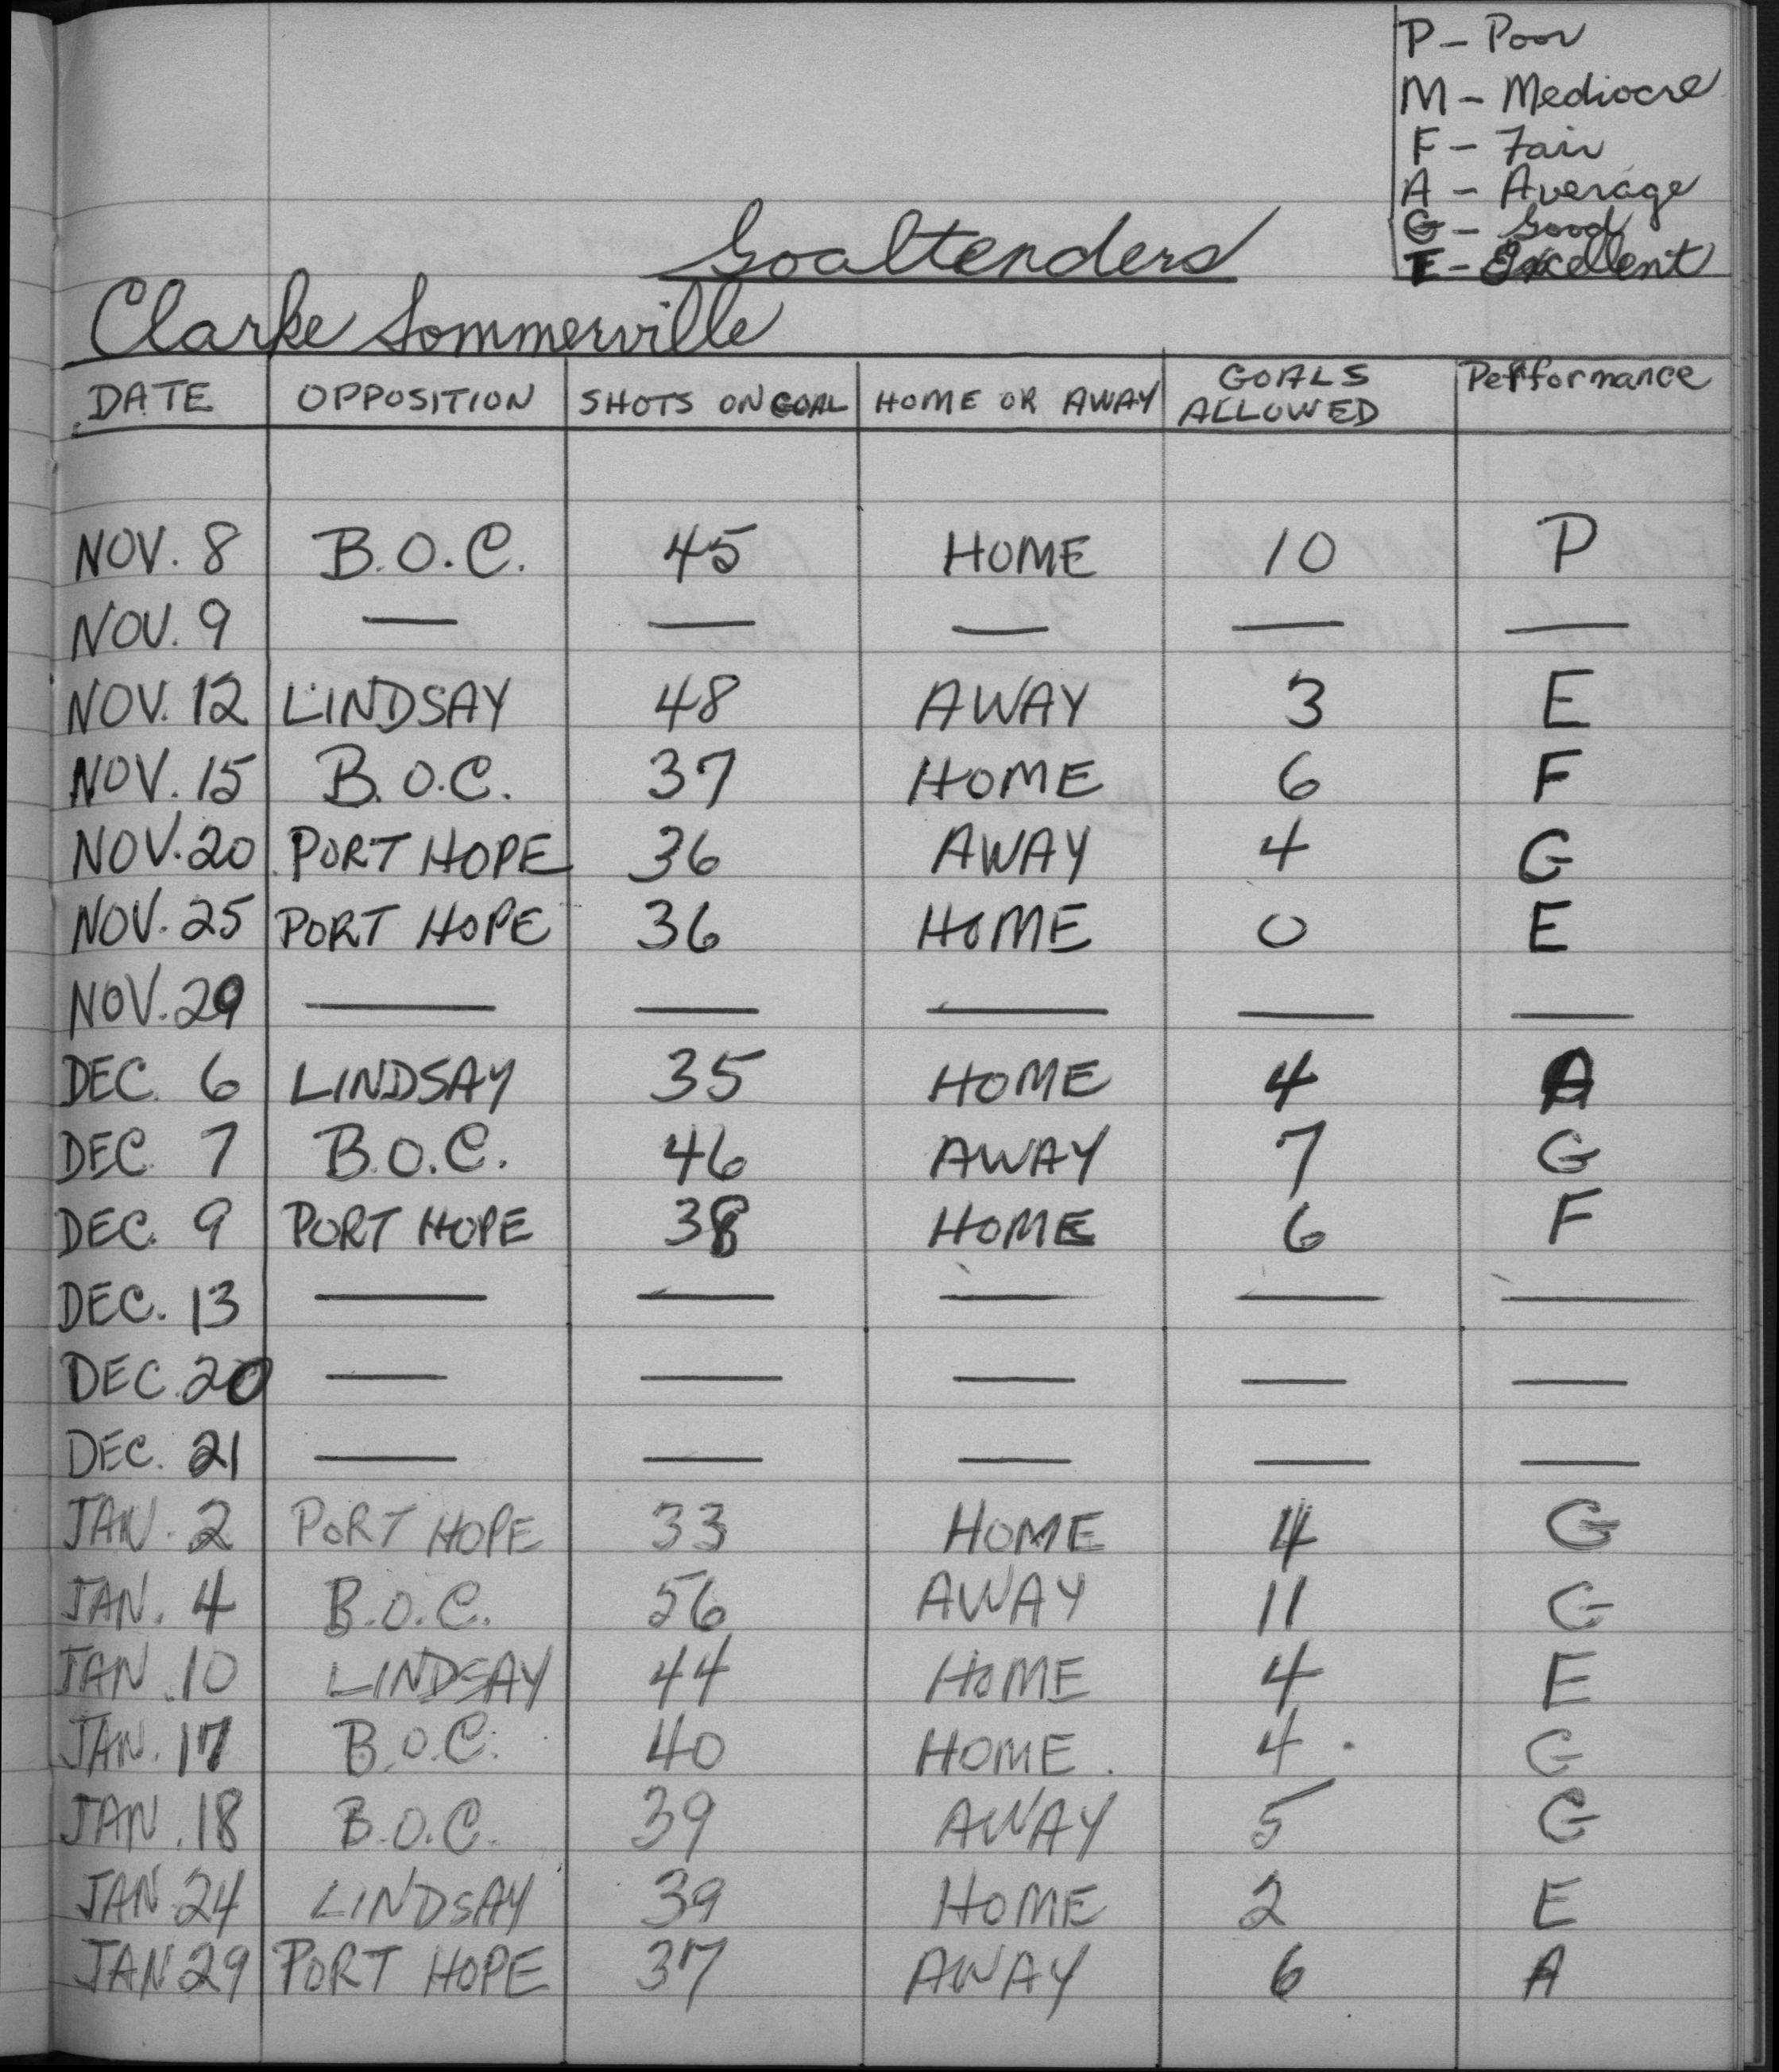 P - Poor
M - Mediocre
F - Fair
A - Average
G - Good
E - Excellent
Goaltenders
Clarke Sommerville
DATE OPPOSITION SHOTS ON GOAL HOME OR AWAY GOALS ALLOWED Performance
NOV. 8 B.O.C. 45 HOME 10 P
NOV. 9 — — — — —
NOV. 12 LINDSAY 48 AWAY 3 E
NOV. 15 B.O.C. 37 HOME 6 F
NOV. 20 PORT HOPE 36 AWAY 4 G
NOV. 25 PORT HOPE 36 HOME 0 E
NOV. 29 — — — — —
DEC. 6 LINDSAY 35 HOME 4 A
DEC. 7 B.O.C. 46 AWAY 7 G
DEC. 9 PORT HOPE 38 HOME 6 F
DEC. 13 — — — — —
DEC. 20 — — — — —
DEC. 21 — — — — —
JAN. 2 PORT HOPE 33 HOME 4 G
JAN. 4 B.O.C. 56 AWAY 11 G
JAN. 10 LINDSAY 44 HOME 4 E
JAN. 17 B.O.C. 40 HOME 4 G
JAN. 18 B.O.C. 39 AWAY 5 G
JAN. 24 LINDSAY 39 HOME 2 E
JAN 29 PORT HOPE 37 AWAY 6 A